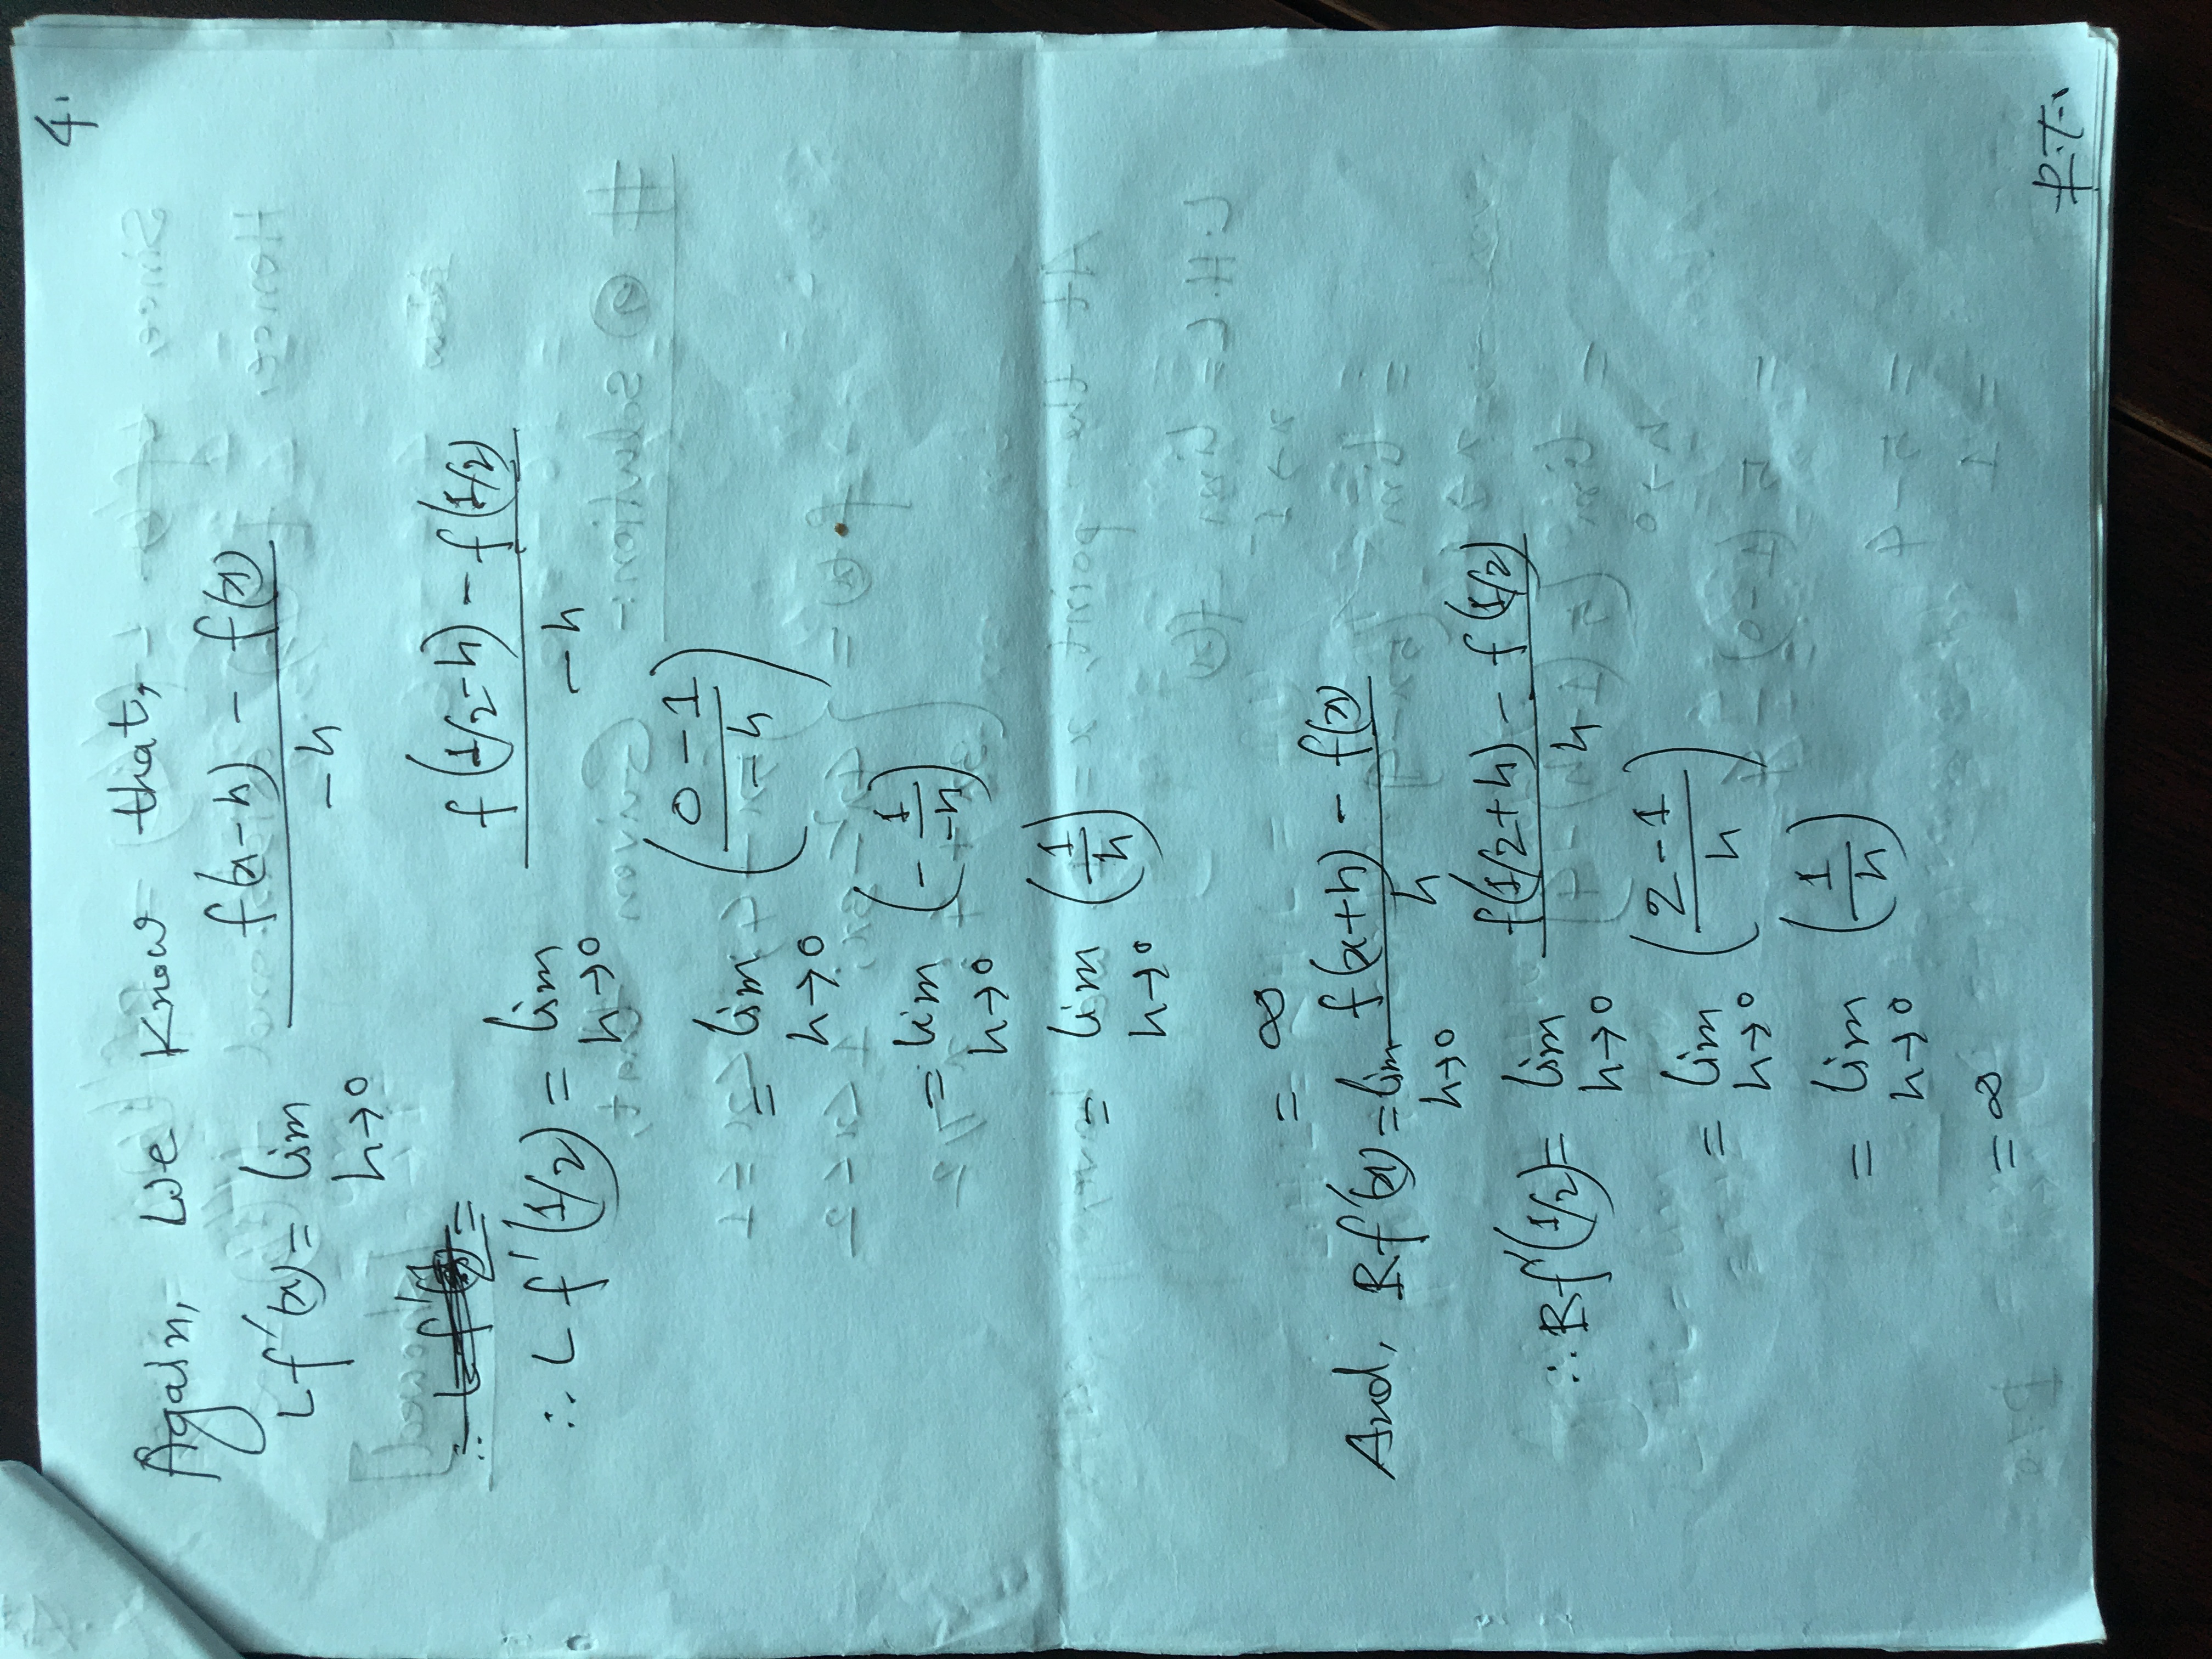 4.
Again, We know that,
Lf'(x) = lim h→0 (f(x-h) - f(x))/(-h)
∴ Lf'(1/2) = lim h→0 (f(1/2-h) - f(1/2))/(-h)
= lim h→0 ((0-1)/(-h))
= lim h→0 (- 1/(-h))
= lim h→0 (1/h)
= ∞
And, Rf'(x) = lim h→0 (f(x+h) - f(x))/h
∴ Rf'(1/2) = lim h→0 (f(1/2+h) - f(1/2))/h
= lim h→0 ((2-1)/h)
= lim h→0 (1/h)
= ∞